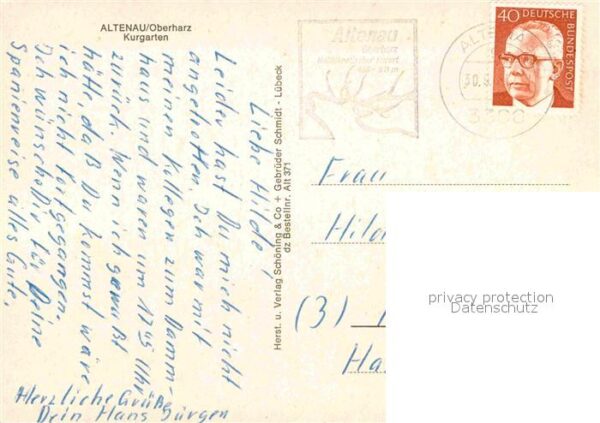 ALTENAU/Oberharz
Kurgarten
Liebe Hilde,
Leider hast Du mich nicht
angetroffen. Ich war mit
meinen Kollegen zum Damm-
haus und waren um 17.45 Uhr
zurück. Wenn ich gewußt
hätte, daß Du kommst wäre
ich nicht fortgegangen.
Ich wünsche Dir für Deine
Spanienreise alles Gute.
Herzliche Grüße
Dein Hans Jürgen
Herst. u. Verlag Schöning & Co + Gebrüder Schmidt - Lübeck
dz Bestellnr. Alt 371
Altenau
Oberharz
40 DEUTSCHE
BUNDESPOST
30.
Frau
(3)
privacy protection
Datenschutz